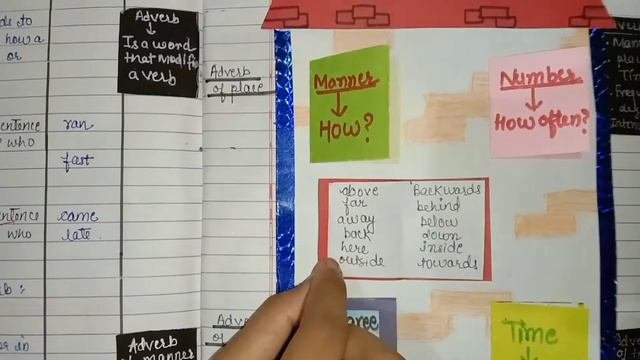 how a
or
sentence
who
sentence
who
ran
fast
came
late
Adverb
Is a word
that modify
a verb
Adverb
of place
Manner
How?
Number
How often?
above
far
away
back
here
outside
Backwards
behind
below
down
inside
towards
Adverb
of manner
Time